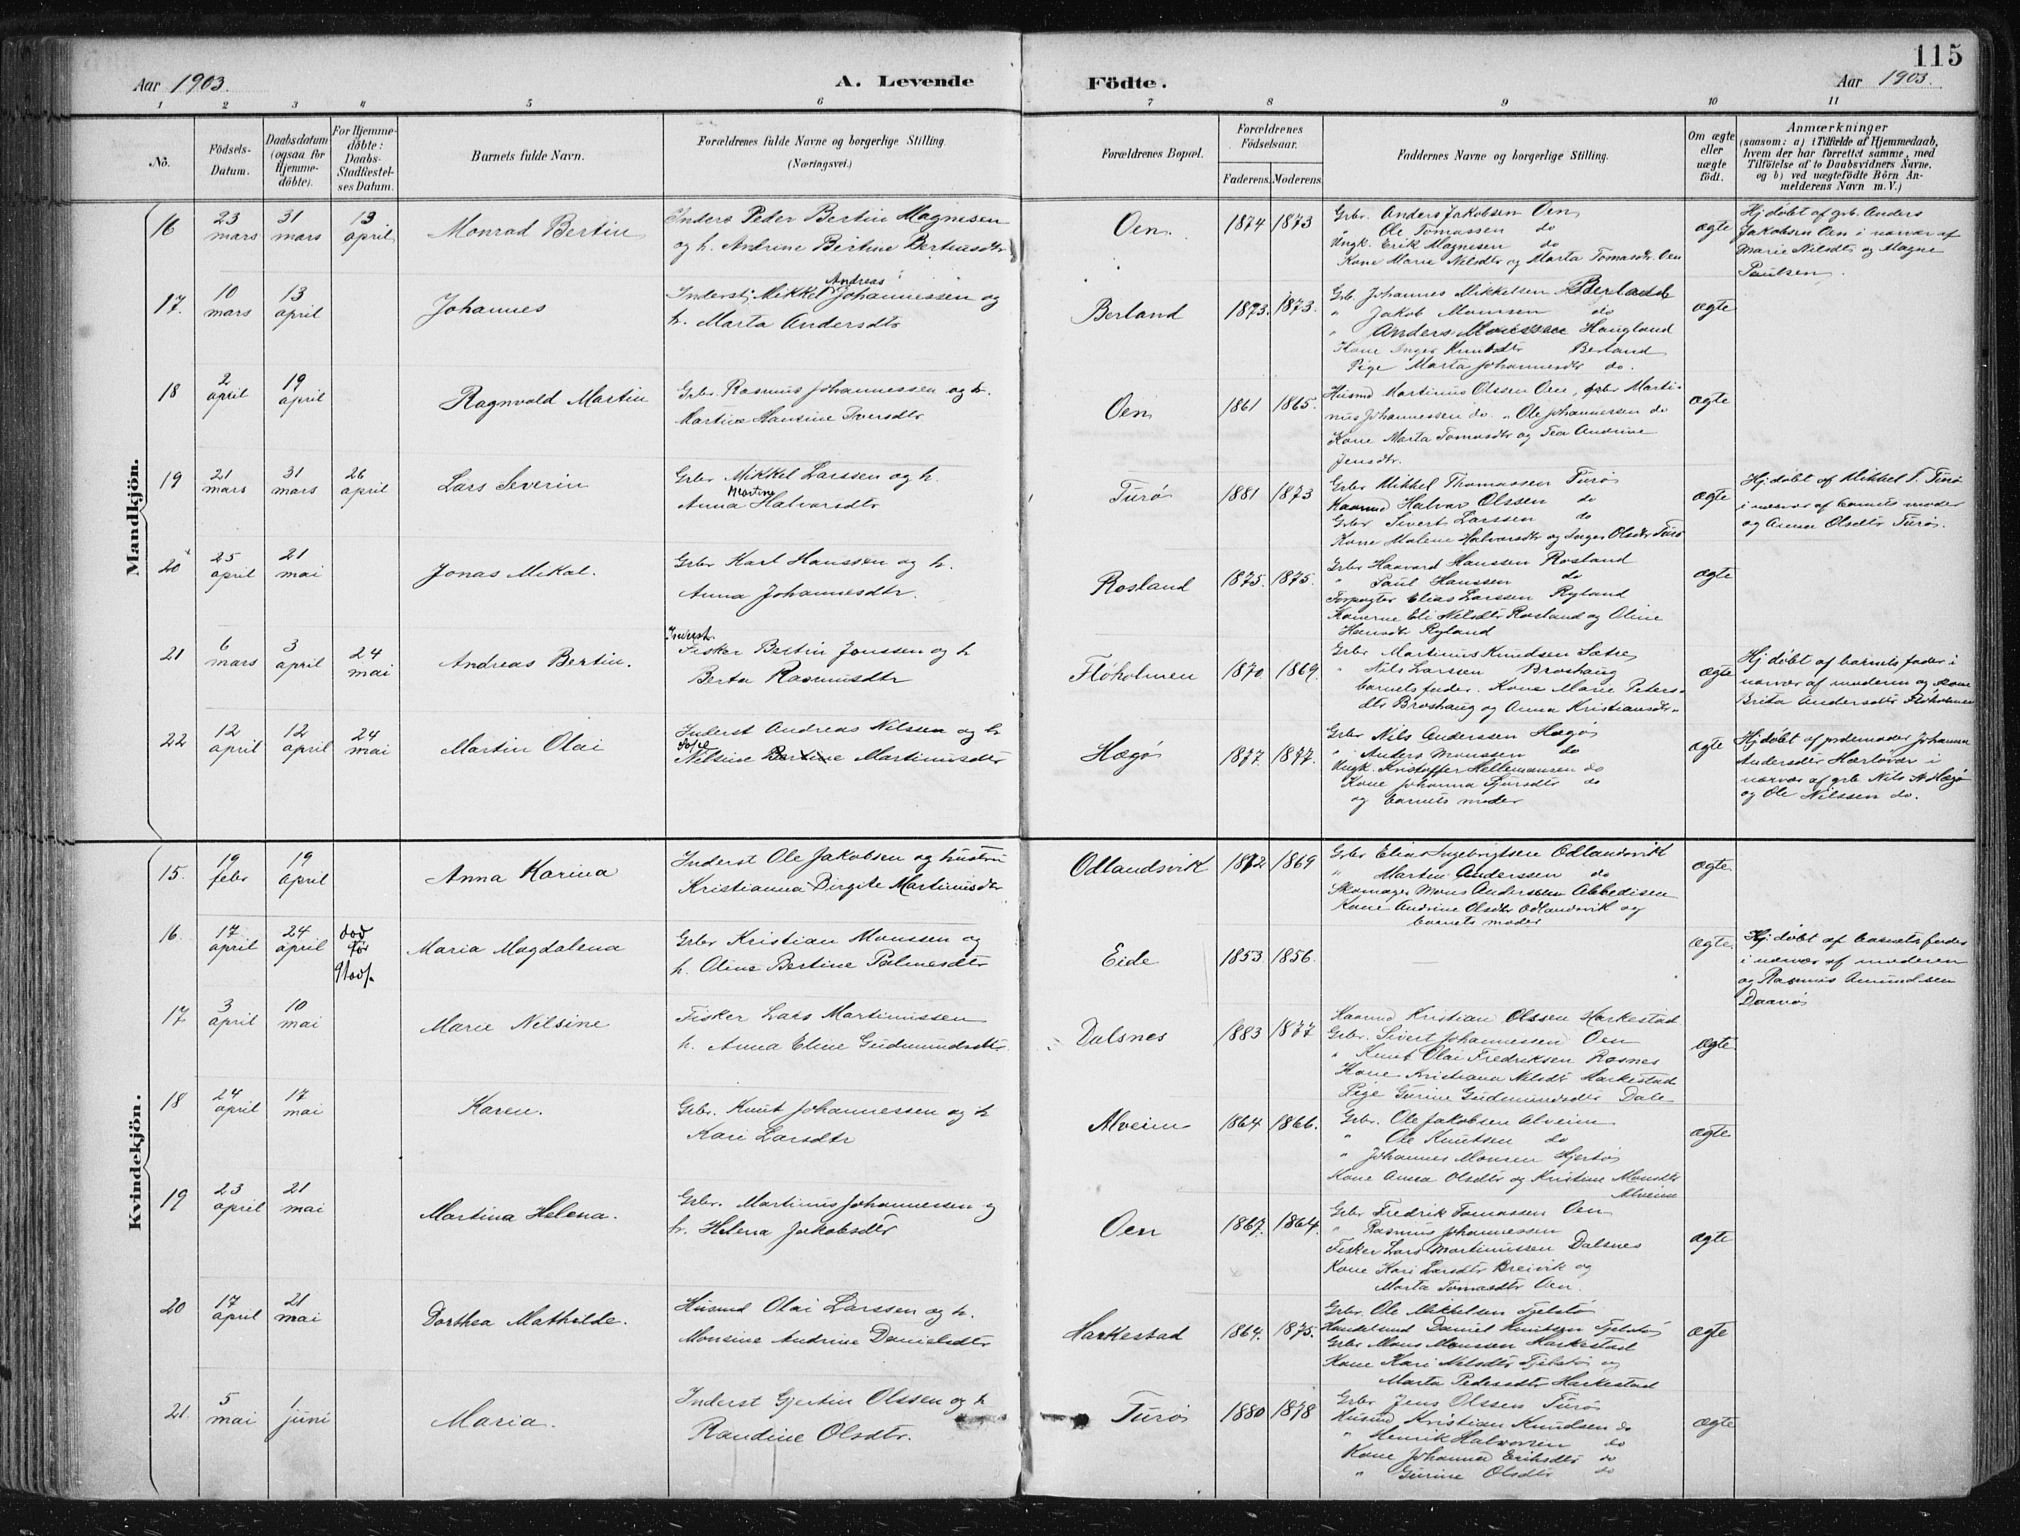 115
Aar 1903.
A. Levende
Födte.
Aar 1903.
1 2 3 4 5 6 7 8 9 10 11
No.
Födsels-
Datum.
Daabsdatum
(ogsaa for
Hjemme-
döbte).
For Hjemme-
döbte:
Daabs-
Stadfæstel-
ses Datum.
Barnets fulde Navn.
Forældrenes fulde Navne og borgerlige Stilling.
(Næringsvei.)
Forældrenes Bopæl.
Forældrenes
Födselsaar.
Faderens. Moderens.
Faddernes Navne og borgerlige Stilling.
Om ægte
eller
uægte
födt.
Anmærkninger
(saasom: a) i Tilfælde af Hjemmedaab,
hvem der har forrettet samme, med
Tilföielse af to Daabsvidners Navne.
og b) ved uægtefödte Börn An-
melderens Navn m. V.)
Mandkjön.
16
23
mars
31
mars
13
april
Monrad Bertin
Inders Peder Bertin Magnesen
og h. Andrine Bertine Bertinsdtr
Oen.
1874 1873
Grbr. Anders Jakobsen Oen
" Ole Tomassen do
Ungk. Erik Magnesen do
Kone Marie Nilsdtr og Marta Tomasdtr. Oen
ægte
Hj døbt af grb. Anders
Jakobsen Oen i nærvær af
Marie Nilsdtr og Magne
Paulsen.
17.
10
mars
13
april
Johannes
Andreas
Inderst. Mikkel Johannessen og
h. Marta Andersdtr
Berland
1873. 1873.
Grb. Johannes Mikkelsen Berland
" Jakob Monsen do
" Anders Haugland
Kone Inger Knutsdtr Berland
Pige Marta Johannesdtr do.
ægte
18
2
april
19
april
Ragnvald Martin
Grbr. Rasmus Johannessen og h.
Martine Hansine Iversdtr
Oen
1861 1865.
Husmd Martinus Olssen Oen, grbr Marti-
nus Johannessen do. " Ole Johannessen do
Kone Marta Tomasdtr og Tea Andrine
Jensdtr.
ægte
19
21
mars
31
mars
26
april
Lars Severin
Grbr Mikkel Larssen og h.
Martine
Anna Halvorsdtr
Turø
1881 1873
Grbr Mikkel Thomassen Turø
Kaarmd Halvor Olssen do
Grbr Sivert Larssen do
Kone Malene Halvorsdtr og Inger Olsdtr Turø
ægte
Hj døbt af Mikkel T. Turø
i nærvær af barnets moder
og Anna Olsdtr Turø.
20
25
april
21
mai
Jonas Mikal.
Grbr Karl Hanssen og h.
Anna Johannesdtr.
Rosland
1875. 1875.
Grbr Haavard Hanssen Rosland
" Paul Hanssen do
Forpagter Elias Larssen Ryland
Konerne Eli Nilsdtr Rosland og Oline
Hansdtr Ryland
ægte
21
6
mars
3
april
24
mai
Andreas Bertin.
Inderst.
Fisker Bertin Jonssen og h
Berta Rasmusdtr
Fløholmen
1870. 1869.
Grbr Martinus Knudsen Sætre
" Nils Larssen Broshaug
barnets fader. Kone Marie Peters-
dtr Broshaug og Anna Kristiansdtr "
ægte
Hj døbt af barnets fader i
nærvær af moderen og kone
Brita Andersdtr Fløholmen
22
12
april
12
april
24
mai
Martin Olai
Inderst Andreas Nilsen og h
Sofie
Nilsine Bertine Martinusdtr
Hægø
1877. 1877.
Grbr Nils Anderssen Hægø
" Anders Monssen do
Ungk. Kristoffer Hellemansen do
Kone Johanna Sjursdtr do
og barnets moder
ægte
Hj døbt af jordemoder Johanna
Andersdtr Hærløvær i
nærvær af grb Nils A Hægø
og Ole Nilssen do.
Kvindekjön.
15.
19
febr
19
april
Anna Karina
Inderst Ole Jakobsen og hustru
Kristianna Birgite Martinusdtr
Odlandsvik
1872. 1869
Grbr Elias Ingebrigtsen Odlandsvik
" Martin Anderssen do
Skomager Mons Anderssen Abbedissen
Kone Andrine Olsdtr Odlandsvik og
barnets moder
ægte
16.
17
april
24
april
død
før
stadf.
Maria Magdalena
Grbr Kristian Monssen og
h. Oline Bertine Palmesdtr
Eide
1853 1856.
ægte.
Hj døbt af barnets fader
i nærvær af moderen
og Rasmus Amundsen
Daarø
17
3
april
10
mai
Marie Nilsine
Fisker Lars Martinussen
h. Anna Eline Gudmundsdtr
Dalsnes
1883 1877
Kaarmd Kristian Olssen Harkestad
Grbr. Sivert Johannessen Oen
" Knut Olai Fredriksen Rosnes
Kone Kristiana Nilsdtr Harkestad
Pige Gurine Gudmundsdtr Dale
ægte
18
24
april
17
mai
Karen.
Grbr. Knut Johannessen og h
Kari Larsdtr
Alveim
1864 1866.
Grbr. Ole Jakobsen Alveim
" Ole Knutsen do
" Johannes Monsen Hjertø
Kone Anna Olsdtr og Kristine Monsdtr
Alveim
ægte
19
23
april
21
mai
Martina Helena.
Grbr. Martinus Johannessen og
h. Helena Jakobsdtr
Oen
1867. 1864.
Grbr Fredrik Tomassen Oen
" Rasmus Johannessen
Fisker Lars Martinussen Dalsnes
Kone Kari Larsdtr Breivik og
Marta Tomasdtr Oen
ægte
20
17
april
21
mai
Dorthea Mathilde.
Husmd Olai Larssen og h.
Monsine Andrine Danielsdtr
Harkestad
1864. 1875.
Grbr. Ole Mikkelsen Tjelstø
Handelsmd Daniel Knutsen Tjelstø
Grbr Mons Monssen Harkestad
Kone Kari Nilsdtr Tjelstø og
Marta Pedersdtr Harkestad
ægte
21
5
mai
1
juni
Maria.
Inderst Gjertin Olssen og h
Randine Olsdtr.
Turø
1880 1878
Grbr Jens Olssen Turø
Husmd Kristian Knudsen do
" Henrik Halvorsen do
Kone Johanna Eriksdtr do
" Gurine Olsdtr do
ægte